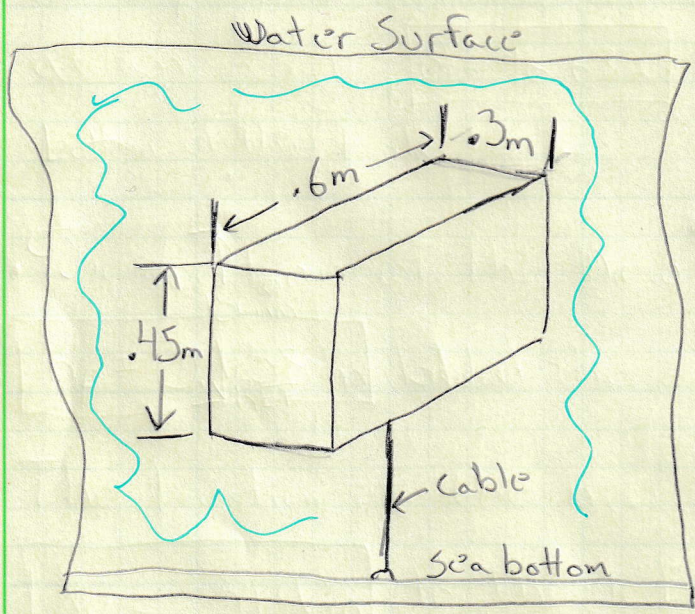 Water Surface
.3m
.6m
.45m
cable
Sea bottom